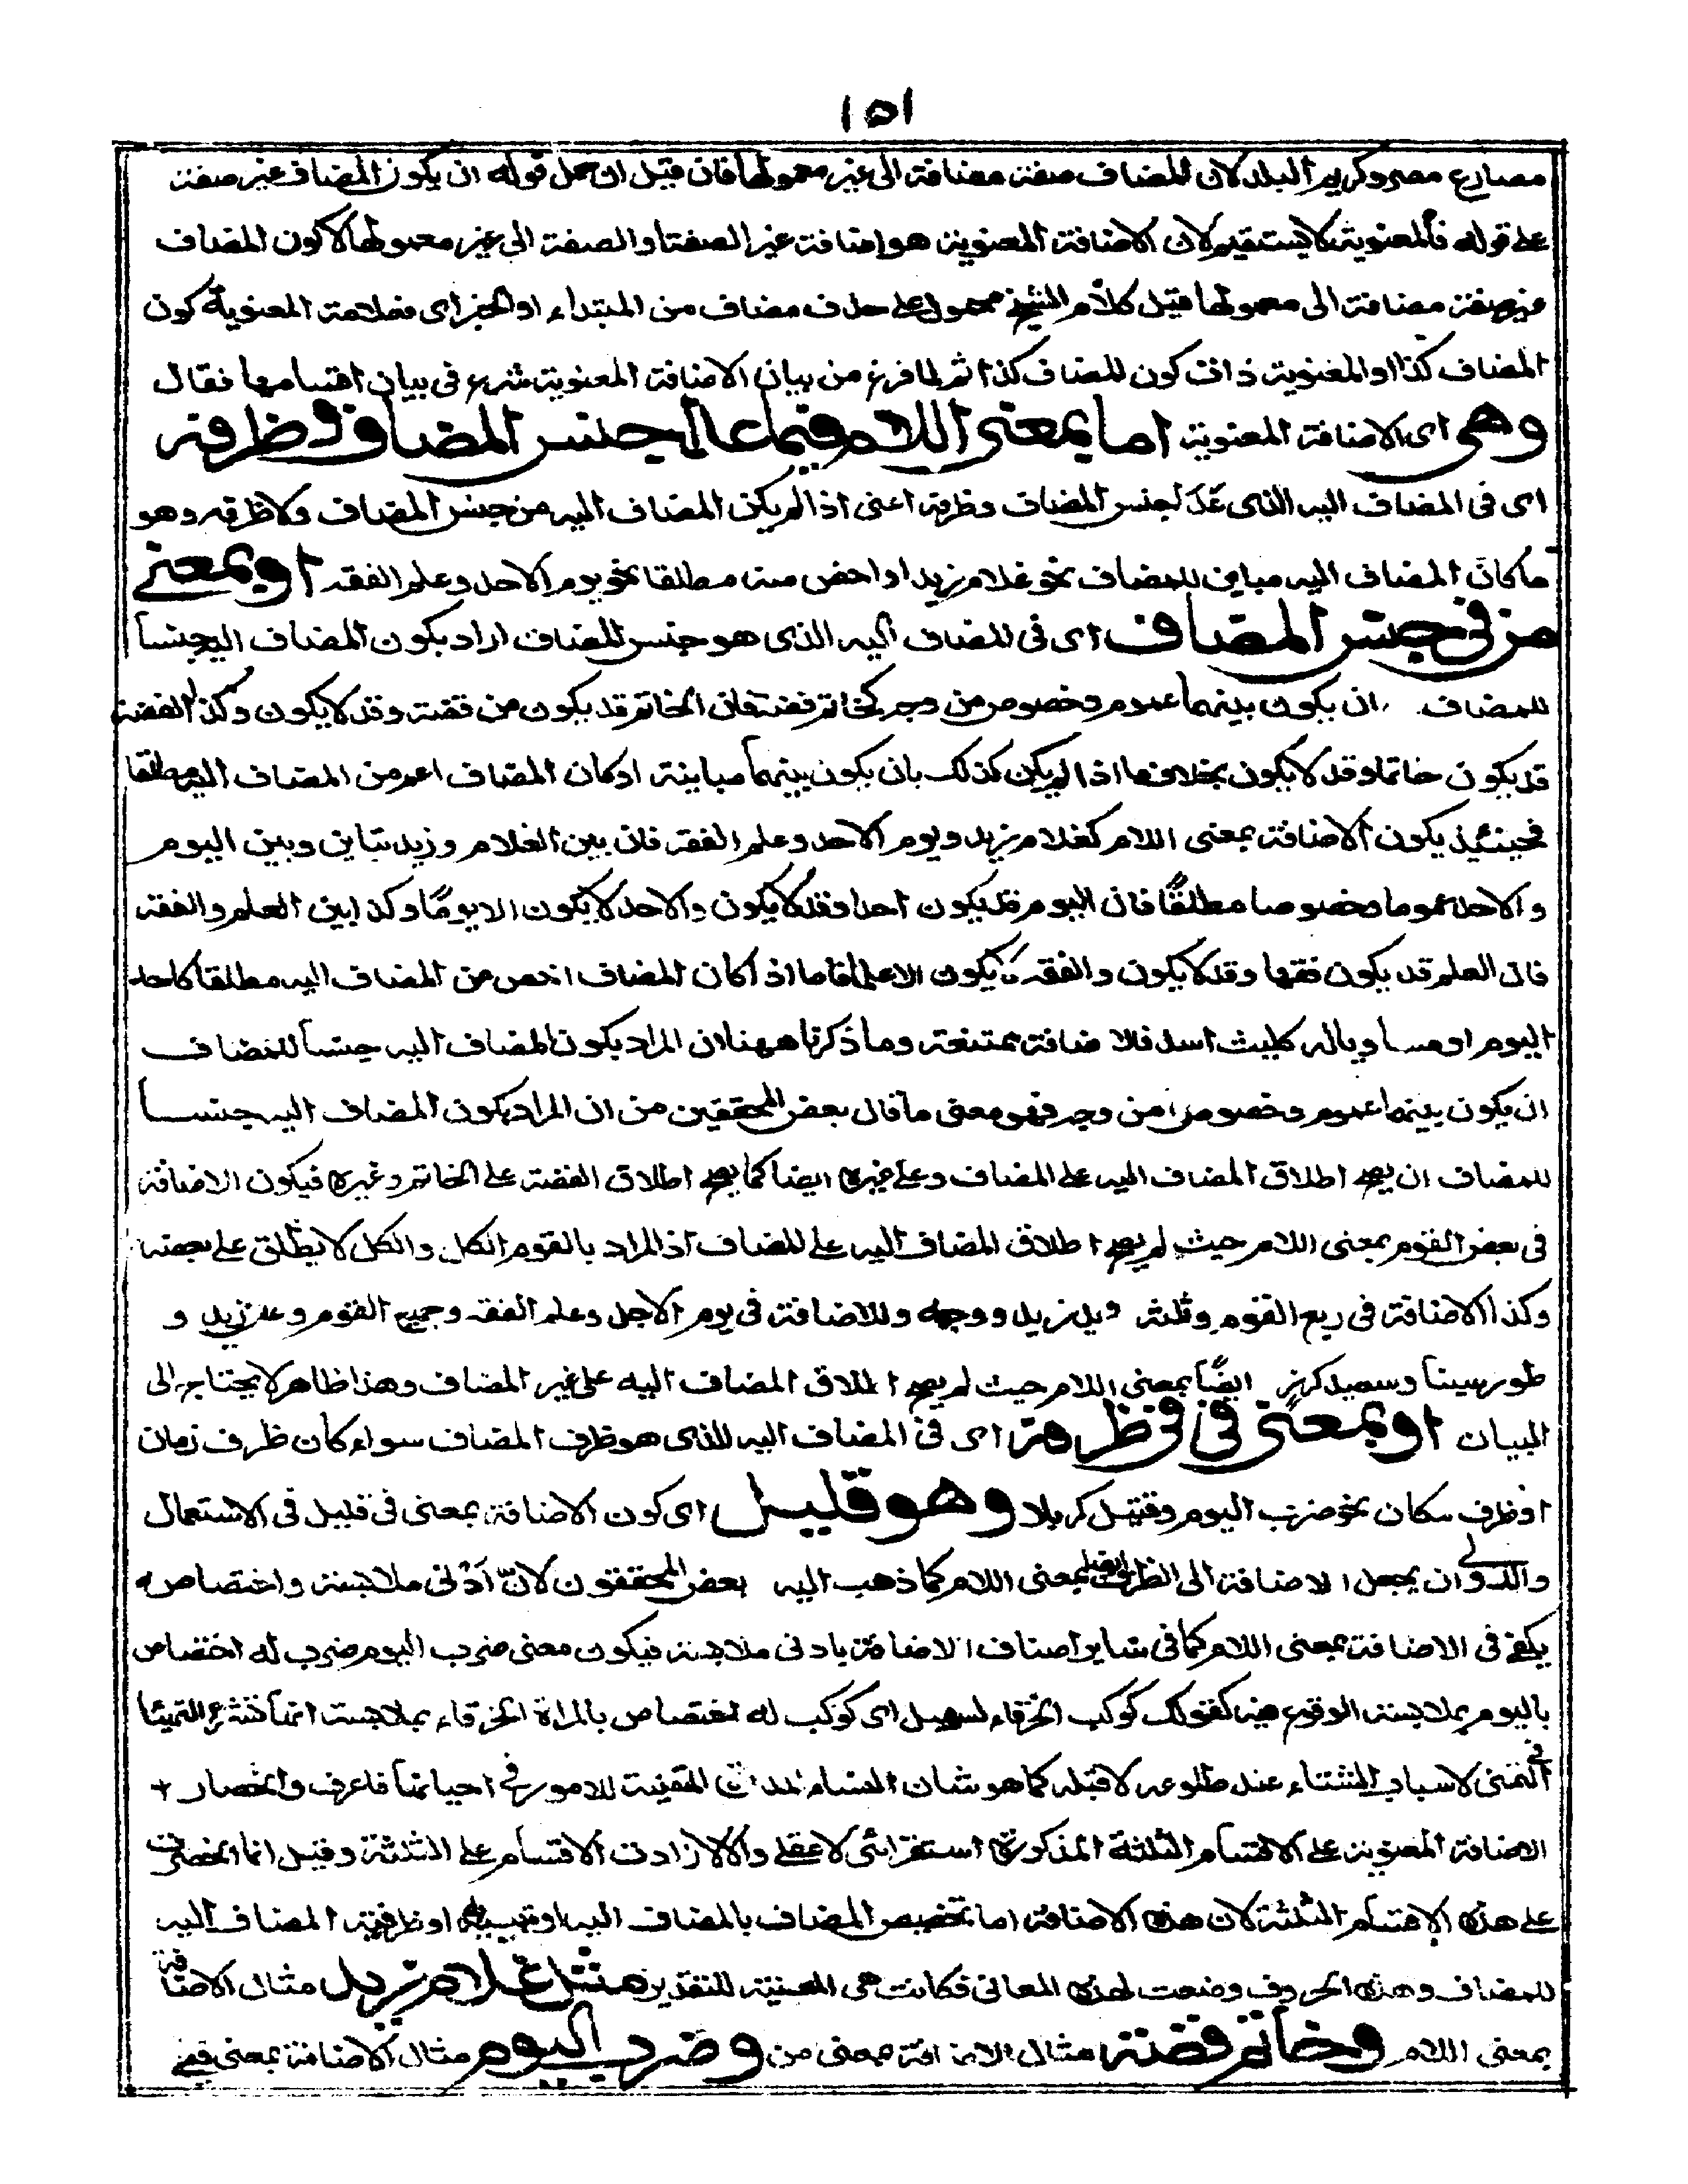 ١٥١
مصارع مصر وكريم البلد لان المضاف صفة مضافة الى غير معمولها فان قيل ان حمل قوله ان يكون المضاف غير صفة
على قوله فالمعنوية لا يستقيم لان الاضافة المعنوية هو اضافة غير الصفة او الصفة الى غير معمولها لا كون المضاف
غير صفة مضافة الى معمولها قيل كلام الشيخ محمول على حذف مضاف من المبتداء او الخبر اى فعلامة المعنوية كون
المضاف كذا او المعنوية ذات كون المضاف كذا ثم لما فرغ من بيان الاضافة المعنوية شرع فى بيان اقسامها فقال
وهى اى الاضافة المعنوية اما بمعنى اللام فيما عدا جنس المضاف وظرفه
اى فى المضاف اليه الذى عدا لجنس المضاف وظرفه اعنى اذا لم يكن المضاف اليه من جنس المضاف ولا ظرفه وهو
ما كان المضاف اليه مباين للمضاف نحو غلام زيد او اخص منه مطلقا نحو يوم الاحد وعلم الفقه او بمعنى
من فى جنس المضاف اى فى المضاف اليه الذى هو جنس المضاف اراد بكون المضاف اليه جنساً
للمضاف ان يكون بينهما عموم وخصوص من وجه كخاتم فضة فان الخاتم قد يكون من فضة وقد لا يكون وكذا الفضة
قد يكون خاتما وقد لا يكون بخلاف ما اذا لم يكن كذلك بان يكون بينهما مباينة او كان المضاف اعم من المضاف اليه مطلقا
فحينئذ يكون الاضافة بمعنى اللام كغلام زيد ويوم الاحد وعلم الفقه فان بين الغلام وزيد تباين وبين اليوم
والاحد عموما وخصوصا مطلقًا فان اليوم قد يكون احدا وقد لا يكون والاحد لا يكون الا يومًا وكذا بين العلم والفقه
فان العلم قد يكون فقها وقد لا يكون والفقه لا يكون الا علما فاما اذا كان المضاف اخص من المضاف اليه مطلقا كاحد
اليوم او مساويا له كليث اسد فالاضافة ممتنعة وما ذكرنا ههنا ان المراد بكون المضاف اليه جنساً للمضاف
ان يكون بينهما عموم وخصوص من وجه فهو معنى ما قال بعض المحققين من ان المراد بكون المضاف اليه جنسا
للمضاف ان يصح اطلاق المضاف اليه على المضاف وعلى غيره ايضا كما يصح اطلاق الفضة على الخاتم وغيره فيكون الاضافة
فى بعض القوم بمعنى اللام حيث لم يصح اطلاق المضاف اليه على المضاف اذ المراد بالقوم الكل والكل لا يطلق على بعضه
وكذا الاضافة فى ربع القوم وثلثه ويد زيد ووجهه والاضافة فى يوم الاحد وعلم الفقه وجميع القوم وعين زيد و
طور سينا وسعيد كرز ايضًا بمعنى اللام حيث لم يصح اطلاق المضاف اليه على غير المضاف وهذا ظاهر لا يحتاج الى
البيان او بمعنى فى فى ظرفه اى فى المضاف اليه الذى هو ظرف المضاف سواء كان ظرف زمان
او ظرف مكان نحو ضرب اليوم وقتيل كربلا وهو قليل اى كون الاضافة بمعنى فى قليل فى الاستعمال
والاولى ان يجعل الاضافة الى الظرف ايضا بمعنى اللام كما ذهب اليه بعض المحققون لانّ ادنى ملابسة واختصاص
يكفى فى الاضافة بمعنى اللام كما فى سائر اصناف الاضافة بادنى ملابسة فيكون معنى ضرب اليوم ضرب له اختصاص
باليوم بملابسة الوقوع فيه كقولك كوكب الخرقاء لسهيل اى كوكب له اختصاص بالمراة الخرقاء بملابسة انها تشرع التهيئا
فى لاسباب الشتاء عند طلوعه لا قبله كما هو شان النساء للامور فى احيانها فاعرف وانحصار
الاضافة المعنوية على الاقسام الثلثة المذكورة استقرائى لا عقلى والا لازادت الاقسام على الثلثة وقيل انما انحصرت
على هذه الاقسام الثلثة لان هذه الاضافة اما تخصيص المضاف بالمضاف اليه او تبيينه او ظرفية المضاف اليه
للمضاف وهذه الحروف وضعت لهذه المعانى فكانت هى المعينة للتقدير مثل غلام زيد مثال الاضافة
بمعنى اللام وخاتم فضة مثال الاضافة بمعنى من وضرب اليوم مثال الاضافة بمعنى فى